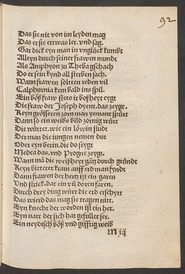 92
Das sie nit von im leydet mag
Das er sie etwwas ler. vnd sag.
Gar dick eyn man in vnglück kumbt
Alleyn durch seiner frawen mundt
Als Amphyon zu Theba geschach
Do er sein kynd all sterben sach.
Wann frawen solten reden vil
Calphurnia kem bald ins spil.
Ein böß fraw stets ir boßheyt eygt
Die fraw der Joseph dyent. das zeygt.
Keyn größern zorn man yemant spürt
Dann so ein weibs bild zornig würt
Die wütet. wie ein löwin sündt
Der man die iungen nemen dut
Oder eyn berin. die do seygt
Medea das. vnd Progne zeygt.
Wann mā die weißheyt gātz durch gründt
Keyn bitterer kraut auff erd man fyndt
Dann frawen. der hertz ist ein garn
Vnd strick. dar ein vil doren faren.
Durch drey ding würt die erd erschyt
Das vierd das mag sie tragen nit.
Eyn knecht der worden ist ein her.
Eyn narr der sich hat gefüllet ser.
Ein neydisch böß vnd gifftig weib
M iij